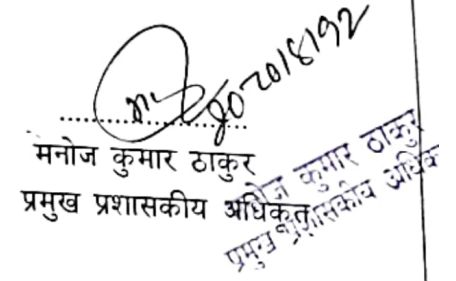 २०७९।८।१२
मनोज कुमार ठाकुर
प्रमुख प्रशासकीय अधिकृत
मनोज कुमार ठाकुर
प्रमुख प्रशासकीय